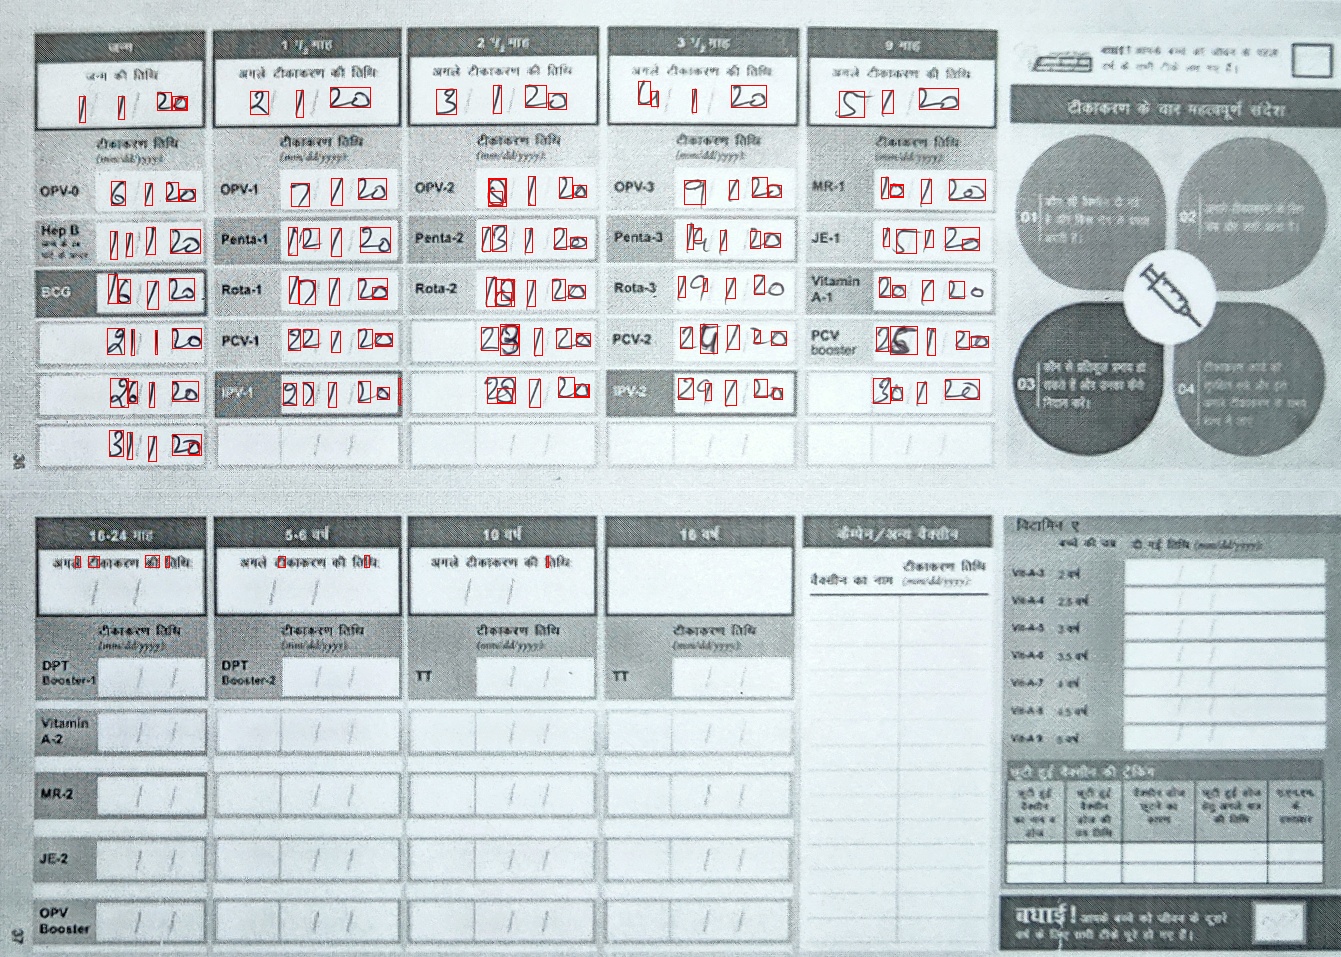 जन्म
जन्म की तिथि
1 / 1 / 20
टीकाकरण तिथि
(mm/dd/yyyy):
OPV-0 6 / 1 / 20
Hep B
जन्म के 24
घंटे के अन्दर
11 / 1 / 20
BCG 16 / 1 / 20
21 / 1 / 20
26 / 1 / 20
31 / 1 / 20
1 1/2 माह
अगले टीकाकरण की तिथि:
2 / 1 / 20
टीकाकरण तिथि
(mm/dd/yyyy):
OPV-1 7 / 1 / 20
Penta-1 12 / 1 / 20
Rota-1 17 / 1 / 20
PCV-1 22 / 1 / 20
IPV-1 27 / 1 / 20
/ /
2 1/2 माह
अगले टीकाकरण की तिथि:
3 / 1 / 20
टीकाकरण तिथि
(mm/dd/yyyy):
OPV-2 8 / 1 / 20
Penta-2 13 / 1 / 20
Rota-2 18 / 1 / 20
23 / 1 / 20
28 / 1 / 20
/ /
3 1/2 माह
अगले टीकाकरण की तिथि:
4 / 1 / 20
टीकाकरण तिथि
(mm/dd/yyyy):
OPV-3 9 / 1 / 20
Penta-3 14 / 1 / 20
Rota-3 19 / 1 / 20
PCV-2 24 / 1 / 20
IPV-2 29 / 1 / 20
/ /
9 माह
अगले टीकाकरण की तिथि:
5 / 1 / 20
टीकाकरण तिथि
(mm/dd/yyyy):
MR-1 10 / 1 / 20
JE-1 15 / 1 / 20
Vitamin
A-1
20 / 1 / 20
PCV
booster
25 / 1 / 20
30 / 1 / 20
/ /
बधाई! आपके बच्चे को जीवन के पहले
वर्ष के सभी टीके लग गए हैं।
टीकाकरण के बाद महत्वपूर्ण संदेश
01
02
03
कौन से प्रतिकूल प्रभाव हो
सकते हैं और उनका कैसे
निदान करें।
04
36
16-24 माह
अगले टीकाकरण की तिथि:
/ /
टीकाकरण तिथि
(mm/dd/yyyy):
DPT
Booster-1
/ /
Vitamin
A-2
/ /
MR-2 / /
JE-2 / /
OPV
Booster
/ /
5-6 वर्ष
अगले टीकाकरण की तिथि:
/ /
टीकाकरण तिथि
(mm/dd/yyyy):
DPT
Booster-2
/ /
10 वर्ष
अगले टीकाकरण की तिथि:
/ /
टीकाकरण तिथि
(mm/dd/yyyy):
TT / /
16 वर्ष
टीकाकरण तिथि
(mm/dd/yyyy):
TT / /
कैम्पेन/अन्य वैक्सीन
वैक्सीन का नाम
टीकाकरण तिथि
(mm/dd/yyyy):
विटामिन ए
बच्चे की उम्र दी गई तिथि (mm/dd/yyyy):
Vit-A-3 2 वर्ष
Vit-A-4 2.5 वर्ष
Vit-A-5 3 वर्ष
Vit-A-6 3.5 वर्ष
Vit-A-7 4 वर्ष
Vit-A-8 4.5 वर्ष
Vit-A 9 5 वर्ष
छूटी हुई वैक्सीन की ट्रैकिंग
छूटी हुई
वैक्सीन
का नाम व
डोज
छूटी हुई
वैक्सीन
डोज की
तय तिथि
वैक्सीन डोज
छूटने का
कारण
छूटी हुई डोज
हेतु अगले सत्र
की तिथि
ए.एन.एम.
के
हस्ताक्षर
बधाई! आपके बच्चे को जीवन के दूसरे
वर्ष के लिए सभी टीके पूरे हो गए हैं।
37